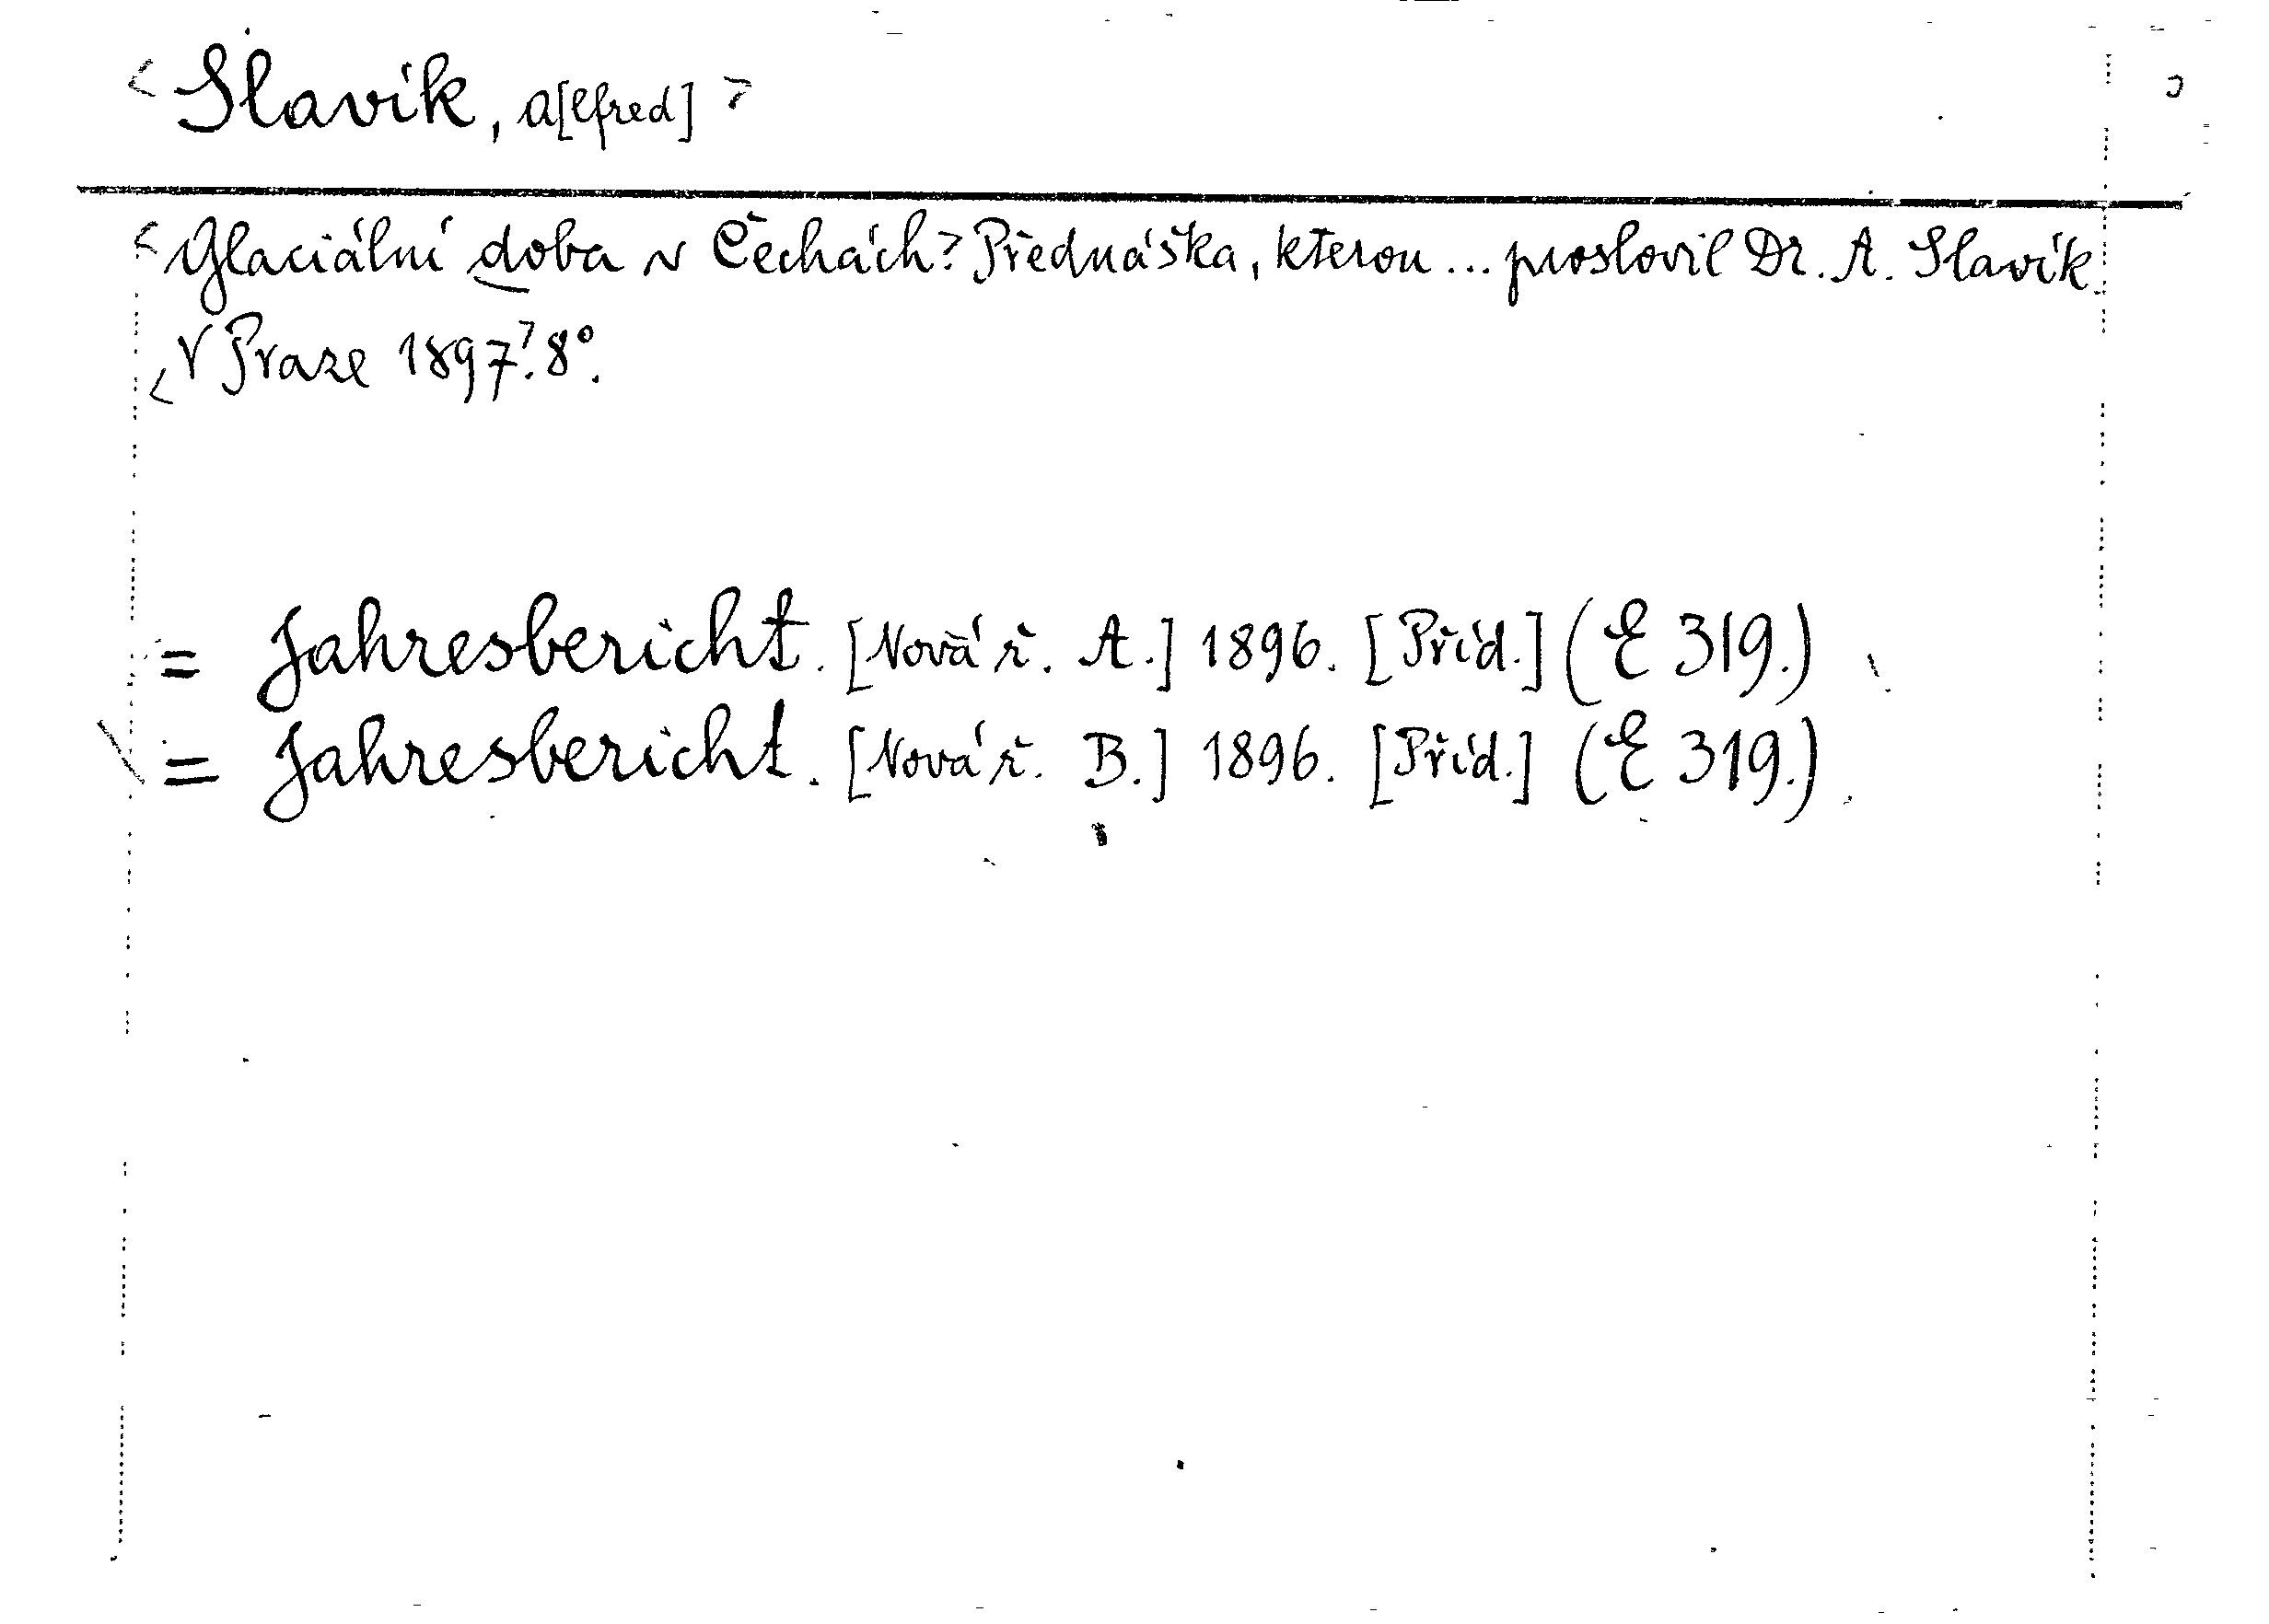 <Slavík, A[lfred]>
<Glaciální doba v Čechách> Přednáška, kterou... proslovil Dr. A. Slavík.
<V Praze 1897>. 8°.
= Jahresbericht. [Nová ř. A.] 1896. [Příd.] (E 319.)
= Jahresbericht. [Nová ř. B.] 1896. [Příd.] (E 319.)